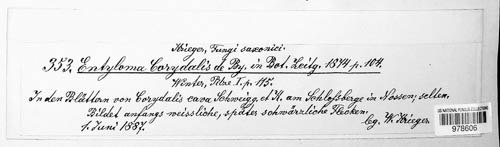 Krieger, Fungi saxonici.
353. Entyloma Corydalis de By. in Bot. Zeitg. 1874 p. 104.
Winter, Pilze I. p. 113.
In den Blättern von Corydalis cava Schweigg. et K. am Schloßberge in Nossen; selten.
Bildet anfangs weissliche, später schwärzliche Flecken.
1. Juni 1887.
lg. W. Krieger.
US NATIONAL FUNGUS COLLECTIONS
978606